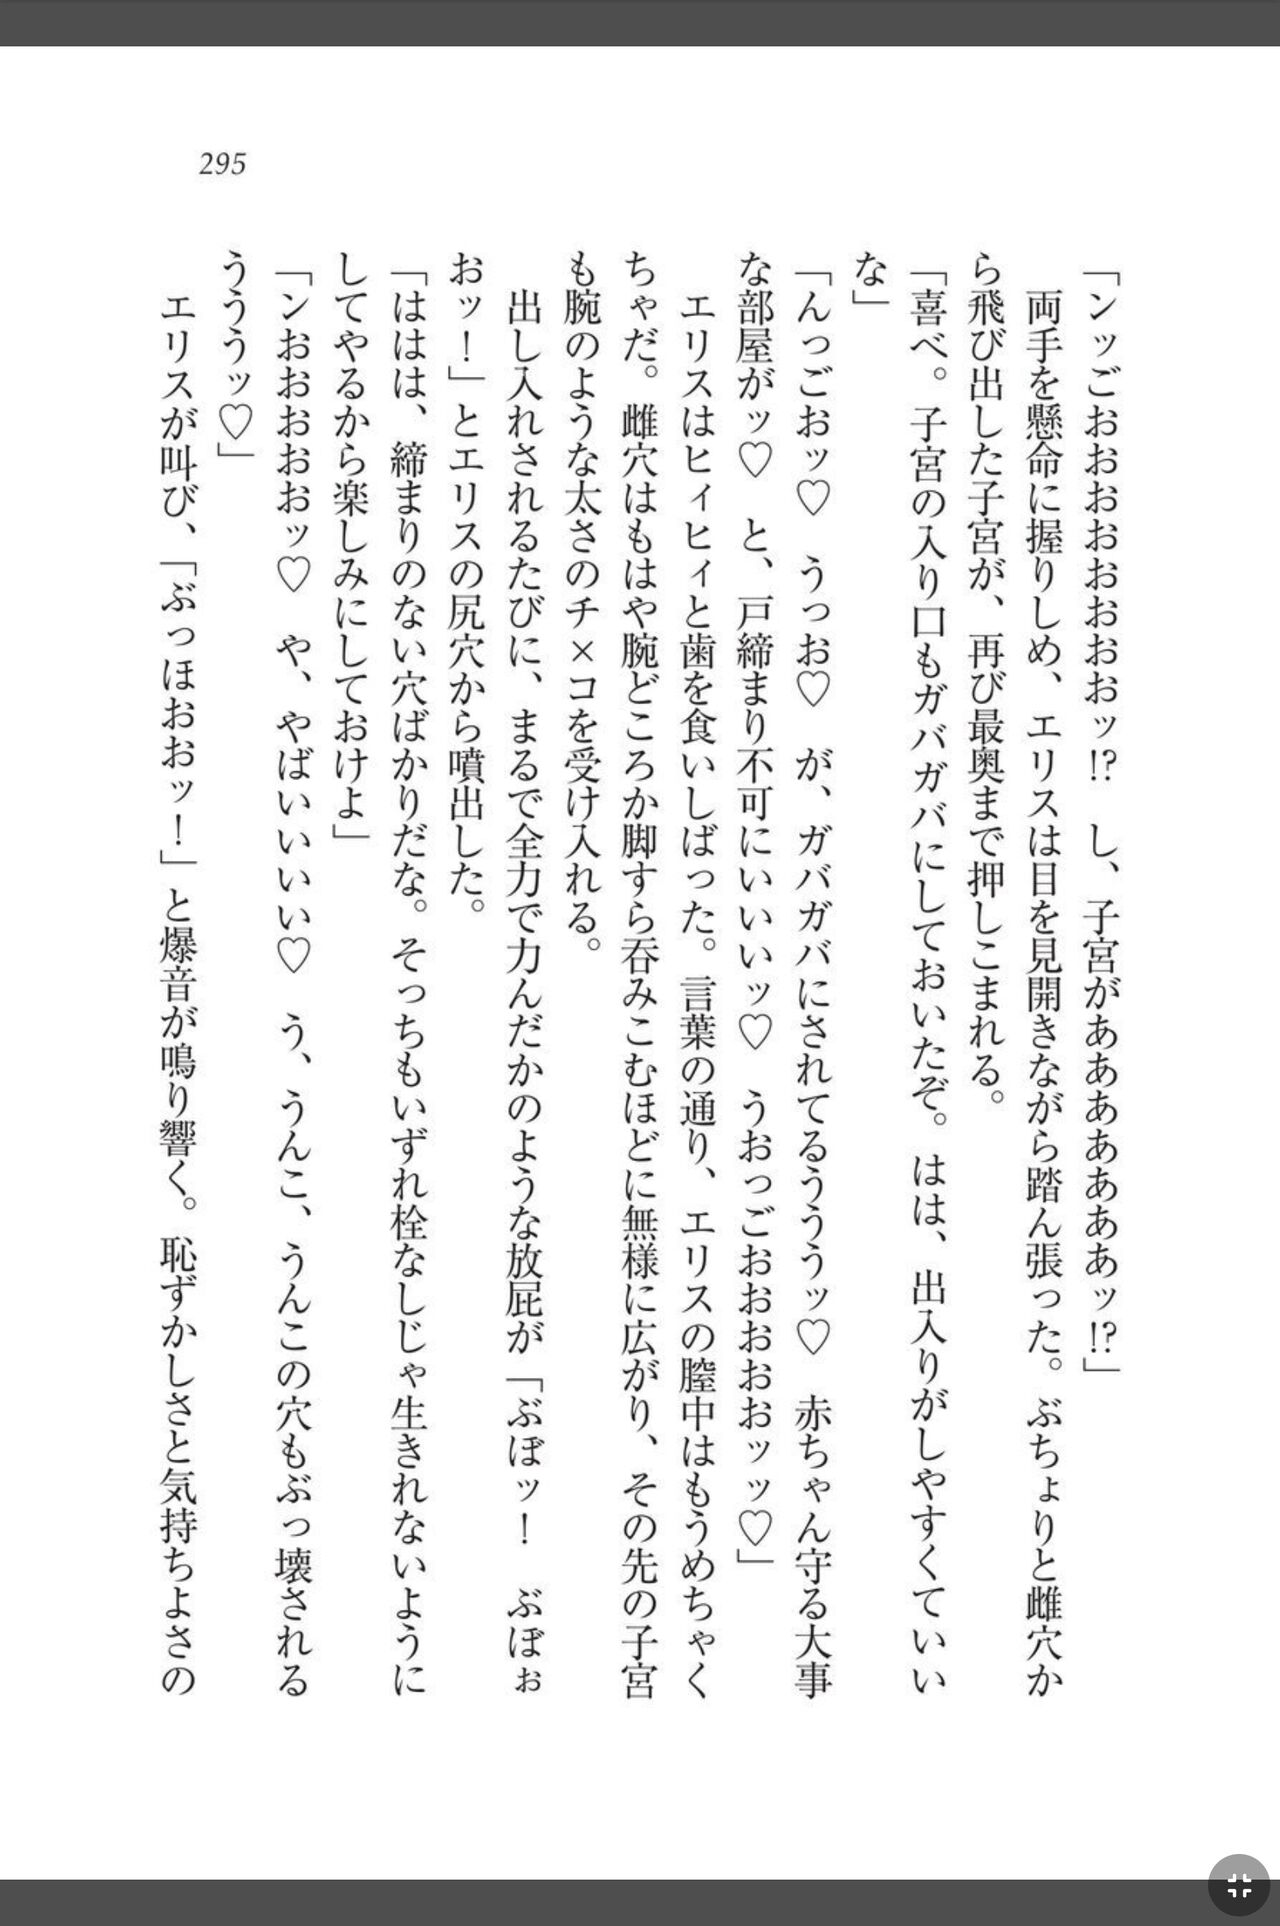 295
「ンッごおおおおおおおッ!?　し、子宮がああああああッ!?」
　両手を懸命に握りしめ、エリスは目を見開きながら踏ん張った。ぶちょりと雌穴か
ら飛び出した子宮が、再び最奥まで押しこまれる。
「喜べ。子宮の入り口もガバガバにしておいたぞ。はは、出入りがしやすくていい
な」
「んっごおッ♡　うっお♡　が、ガバガバにされてるうううッ♡　赤ちゃん守る大事
な部屋がッ♡　と、戸締まり不可にいいいッ♡　うおっごおおおおおッッ♡」
　エリスはヒィヒィと歯を食いしばった。言葉の通り、エリスの膣中はもうめちゃく
ちゃだ。雌穴はもはや腕どころか脚すら呑みこむほどに無様に広がり、その先の子宮
も腕のような太さのチ×コを受け入れる。
　出し入れされるたびに、まるで全力で力んだかのような放屁が「ぶぼッ！　ぶぼぉ
おッ！」とエリスの尻穴から噴出した。
「ははは、締まりのない穴ばかりだな。そっちもいずれ栓なしじゃ生きれないように
してやるから楽しみにしておけよ」
「ンおおおおおッ♡　や、やばいいいい♡　う、うんこ、うんこの穴もぶっ壊される
うううッ♡」
　エリスが叫び、「ぶっほおおッ！」と爆音が鳴り響く。恥ずかしさと気持ちよさの